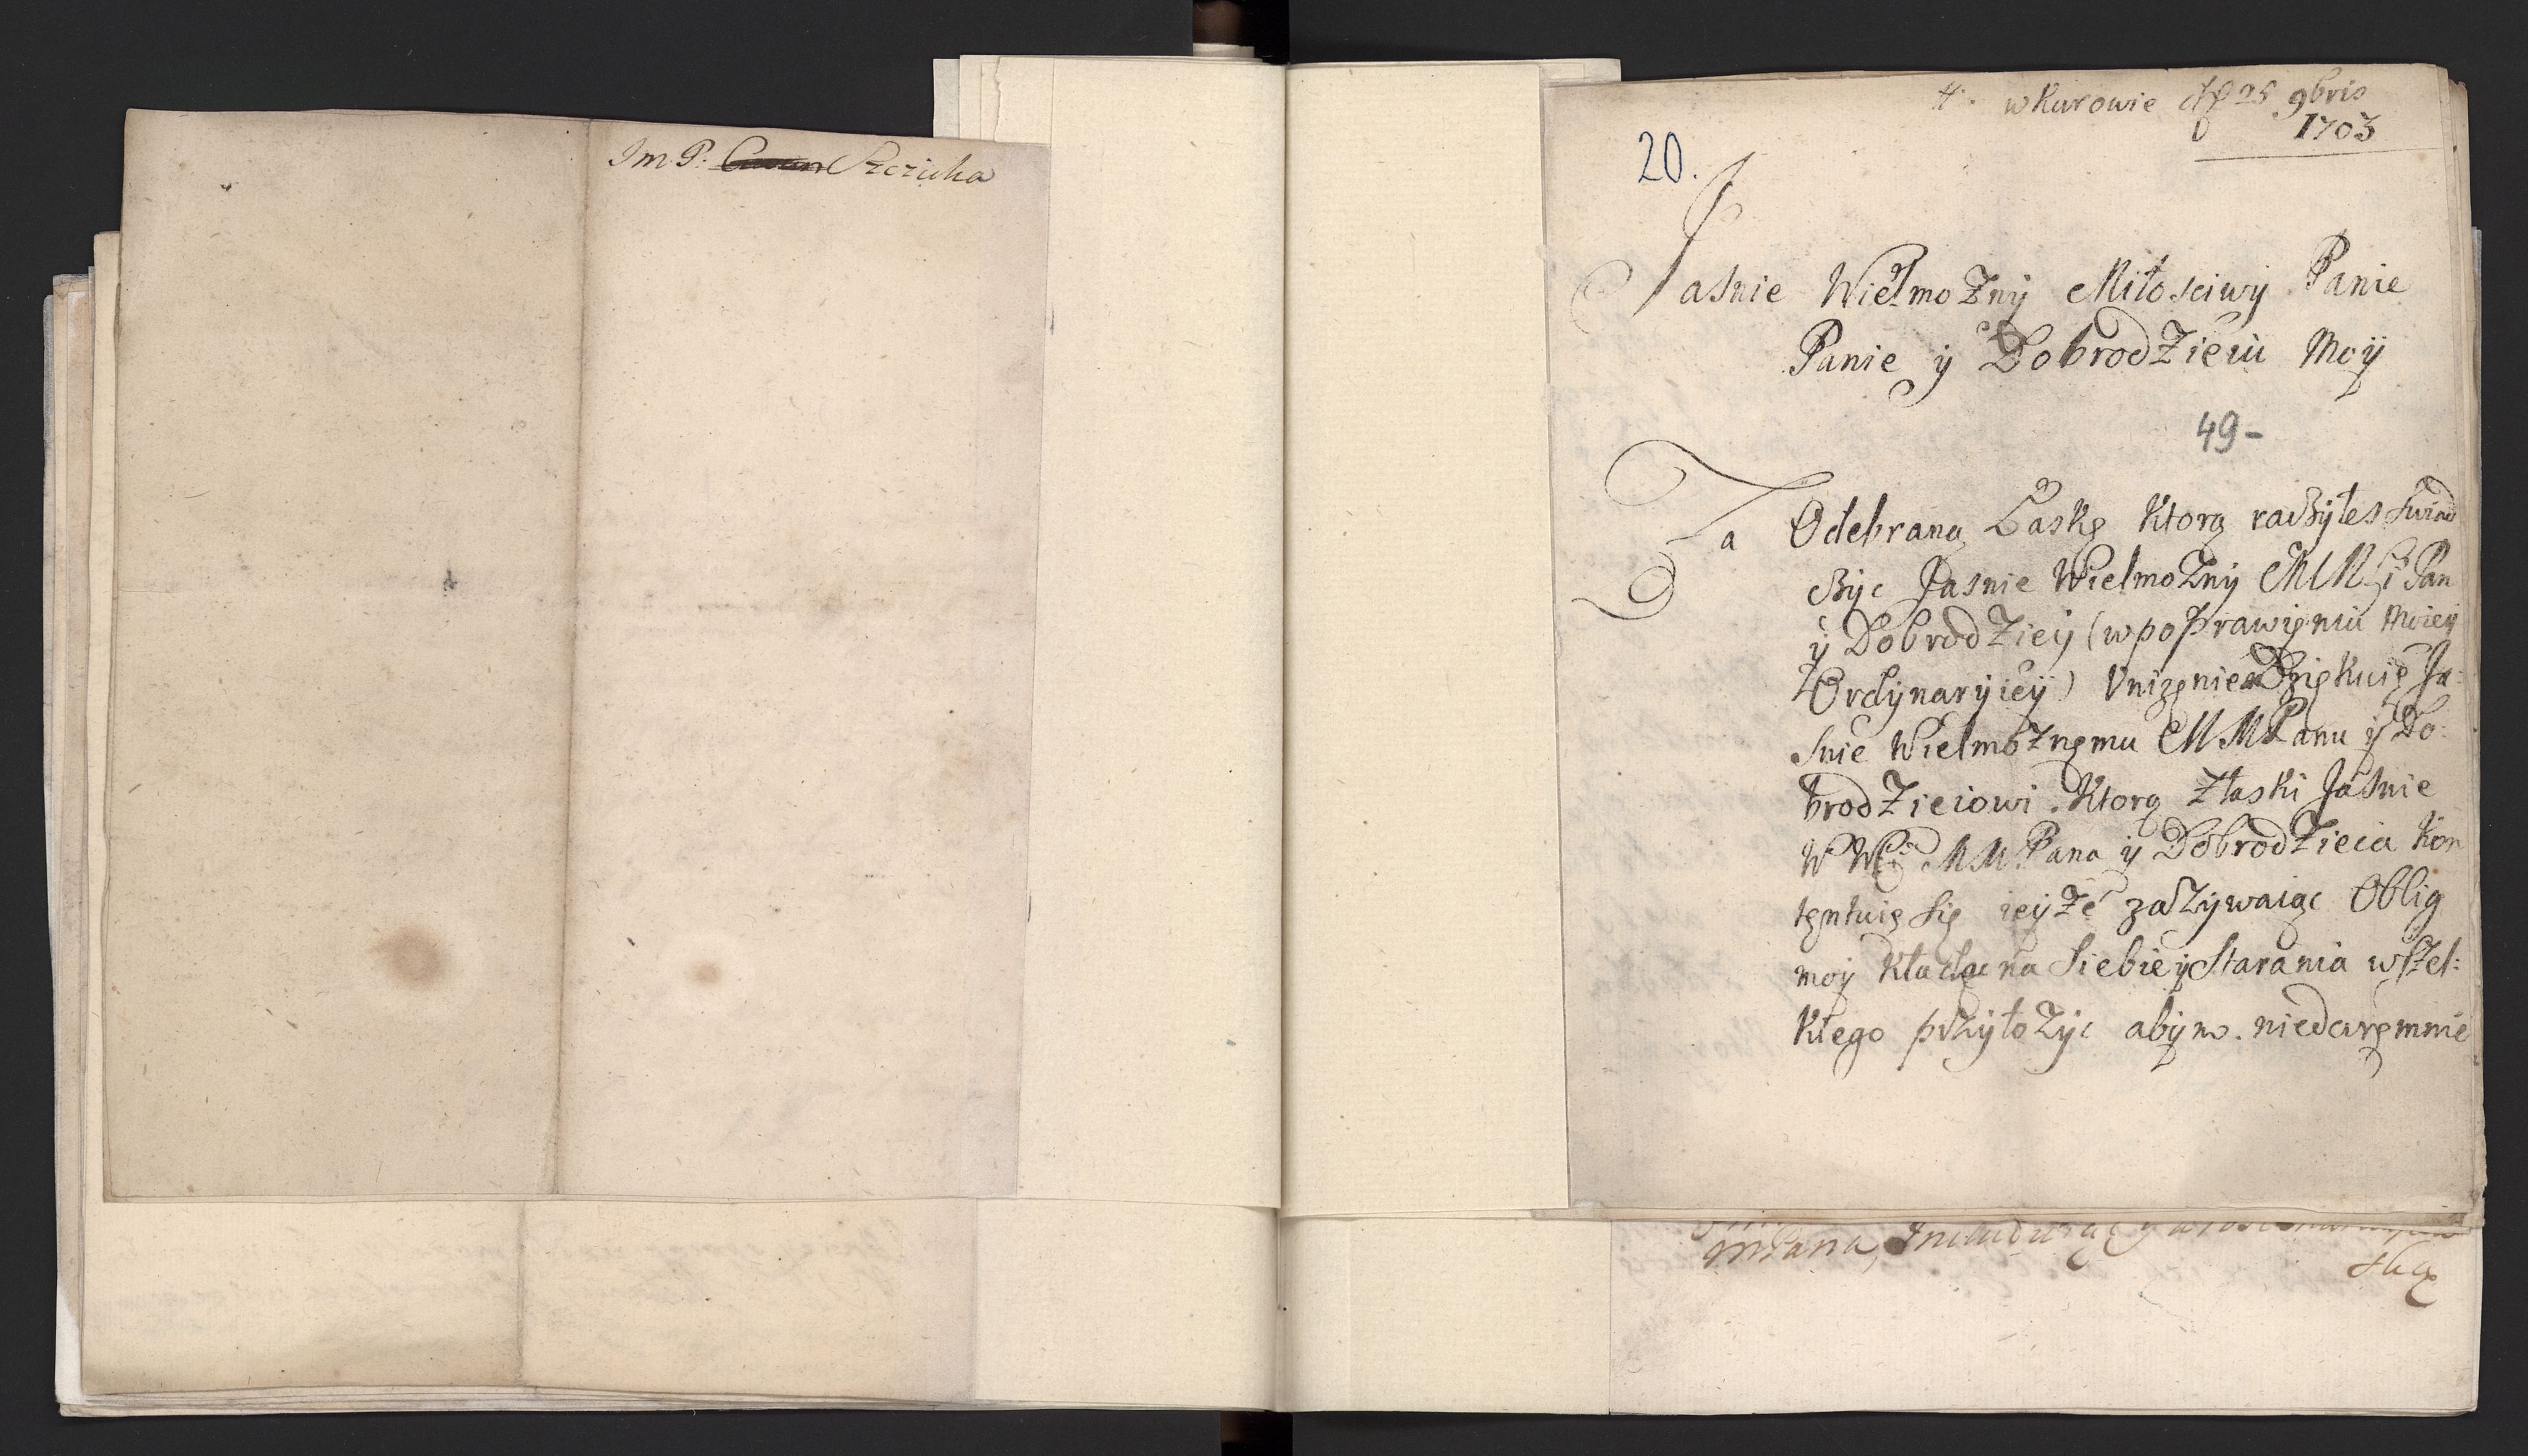 Im P: Szczuka
4. w Kurowie 25 9bris
1703
20.
Jasnie Wielmozny Miłosciwy Panie
Panie y Dobrodzieiu Moy
49-
Za Odebraną Łaskę Ktorą raczyłes swiad
czyc Jasnie Wielmozny Pan
y Dobrodziey (w poprawięniu moiey
Ordynaryiey) Vnizęnie Dziękuię Ja:
snie Wielmoznęmu MMPanu y Do:
brodzieiowi. Ktorą z łaski Jasnie
W MMPana y Dobrodzieia Kon
tęntuię się ieyze zazywaiąc Oblig
moy Kładąc na siebie y Starania wszel:
kiego przyłozyc abym niedaręmnie
MPana,
sługą